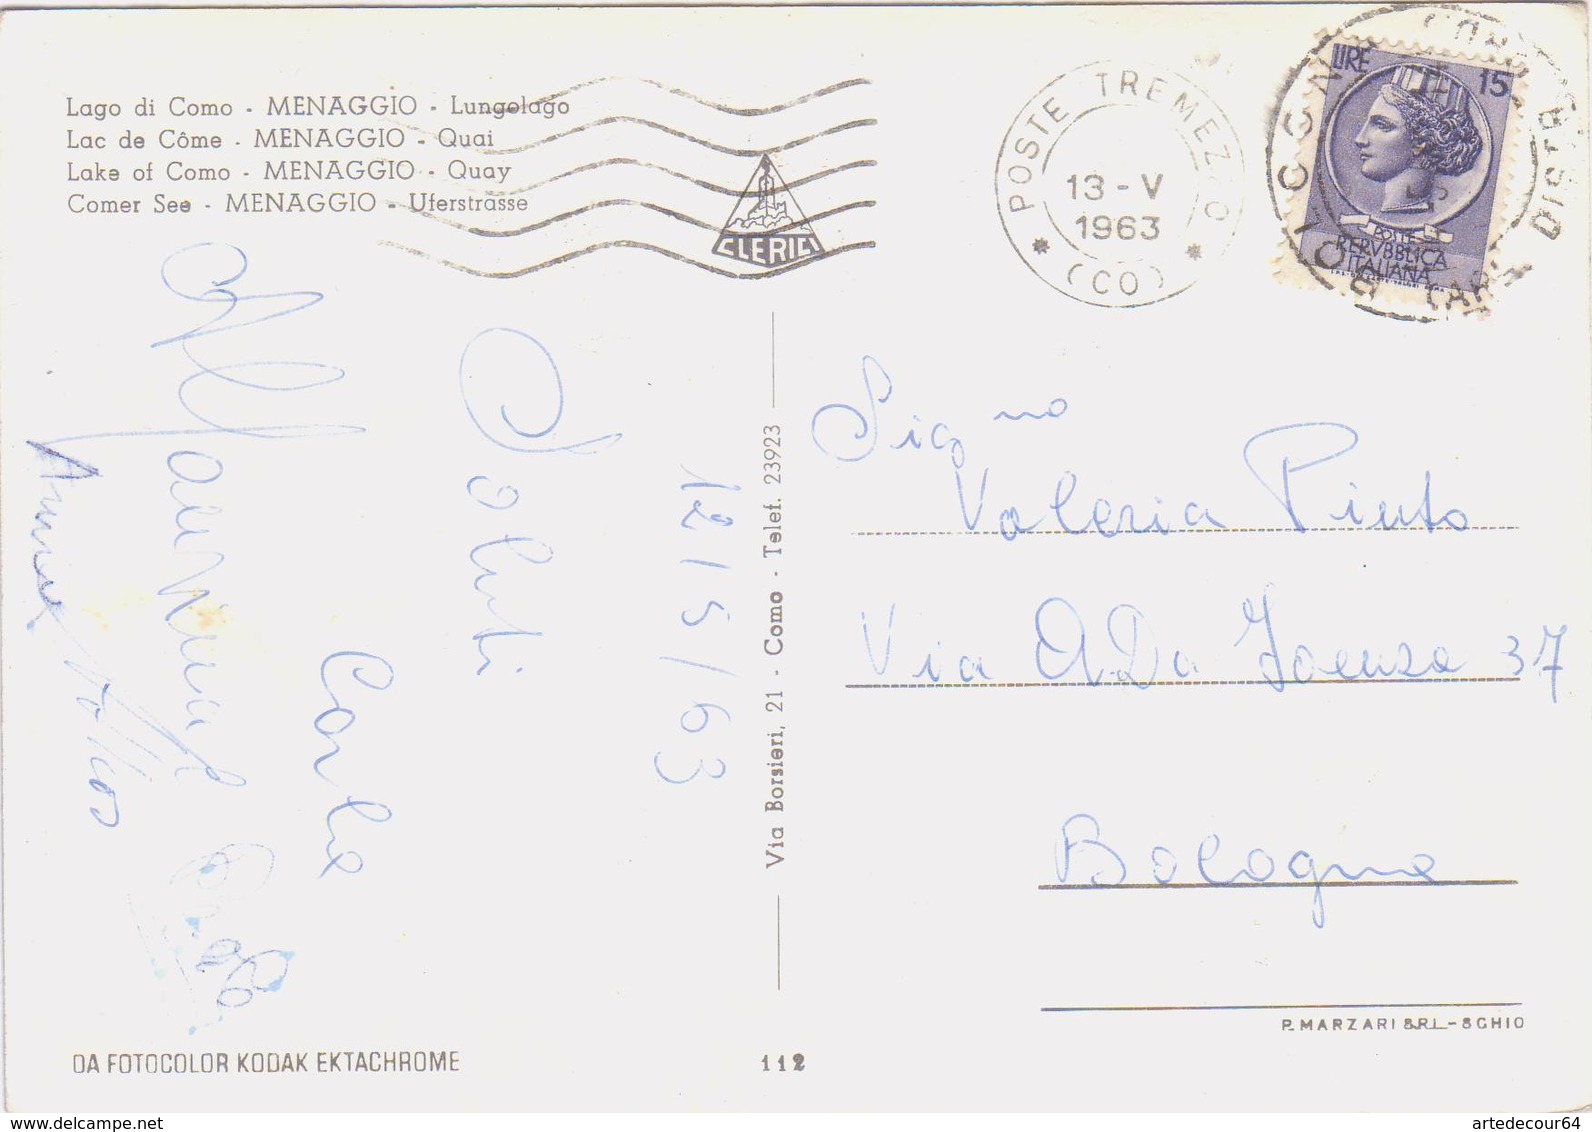 Lago di Como - MENAGGIO - Lungolago
Lac de Côme - MENAGGIO - Quai
Lake of Como - MENAGGIO - Quay
Comer See - MENAGGIO - Uferstrasse
CLERICI
POSTE TREMEZZO
13-V
1963
(CO)
LIRE 15
POSTE
REPVBBLICA
ITALIANA
BOLOGNA
DISTRIB
12/5/63
Saluti
Carla
Via Borsieri, 21 - Como - Telef. 23923
Sig.na
Valeria Pinto
Via A Da Faenza 37
Bologna
P. MARZARI S.R.L. - SCHIO
DA FOTOCOLOR KODAK EKTACHROME
112
www.delcampe.net
artedecour64